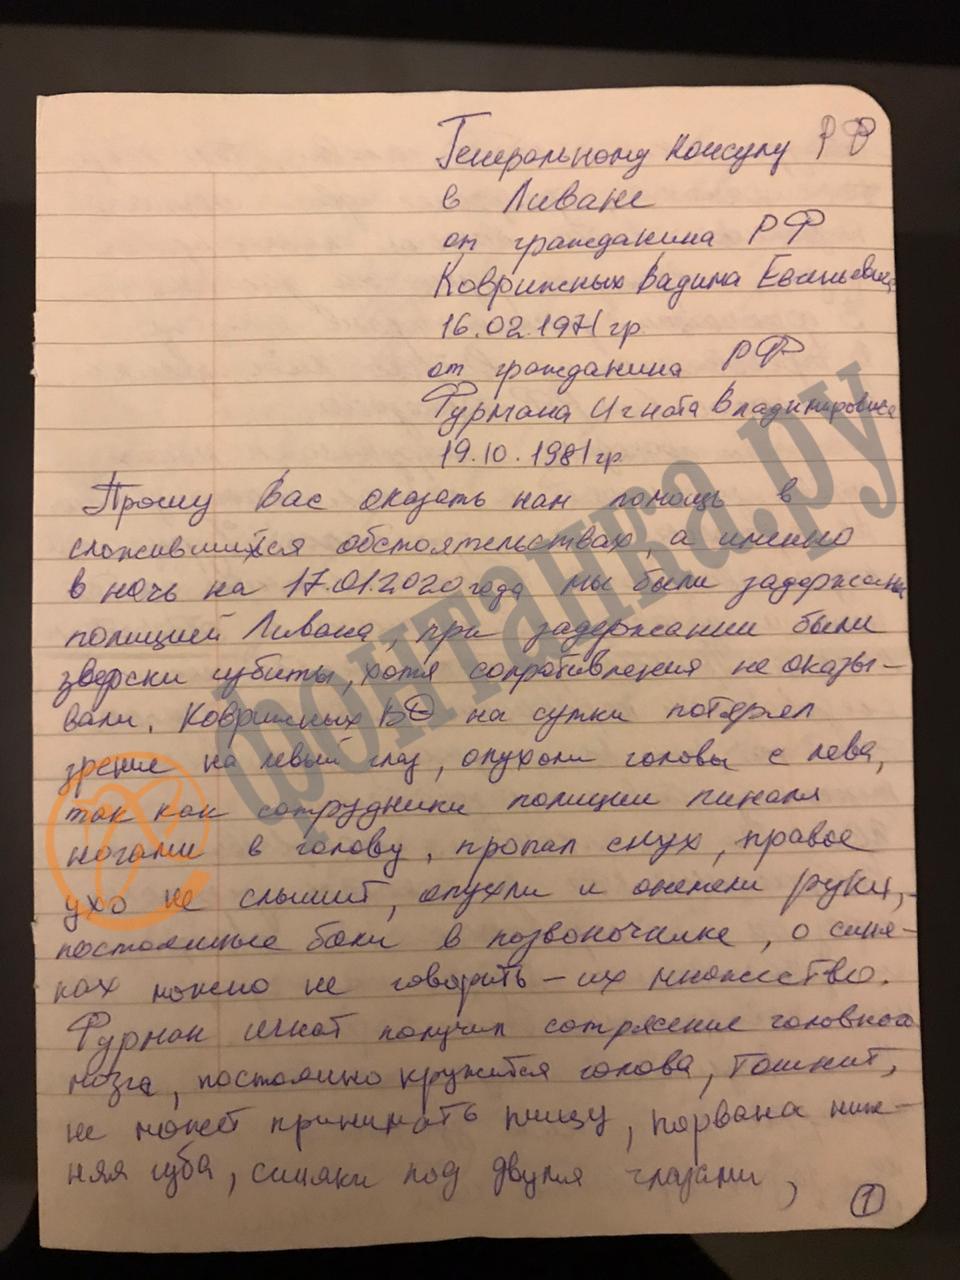 Генеральному консулу РФ
в Ливане
от гражданина РФ
Коврижных Вадима Евгеньевича
16.02.1971 гр
от гражданина РФ
Фурмана Игната Владимировича
19.10.1981 гр
Прошу Вас оказать нам помощь в
сложившихся обстоятельствах, а именно
в ночь на 17.01.2020 года мы были задержаны
полицией Ливана, при задержании были
зверски избиты, хотя сопротивления не оказы-
вали. Коврижных ВЕ на сутки потерял
зрение на левый глаз, опухоли головы с лева,
так как сотрудники полиции пинали
ногами в голову, пропал слух, правое
ухо не слышит, опухли и онемели руки,
постоянные боли в позвоночнике, о синя-
ках можно не говорить – их множество.
Фурман Игнат получил сотрясение головного
мозга, постоянно кружится голова, тошнит,
не может принимать пищу, порвана ниж-
няя губа, синяки под двумя глазами,
1
фонтанка.ру